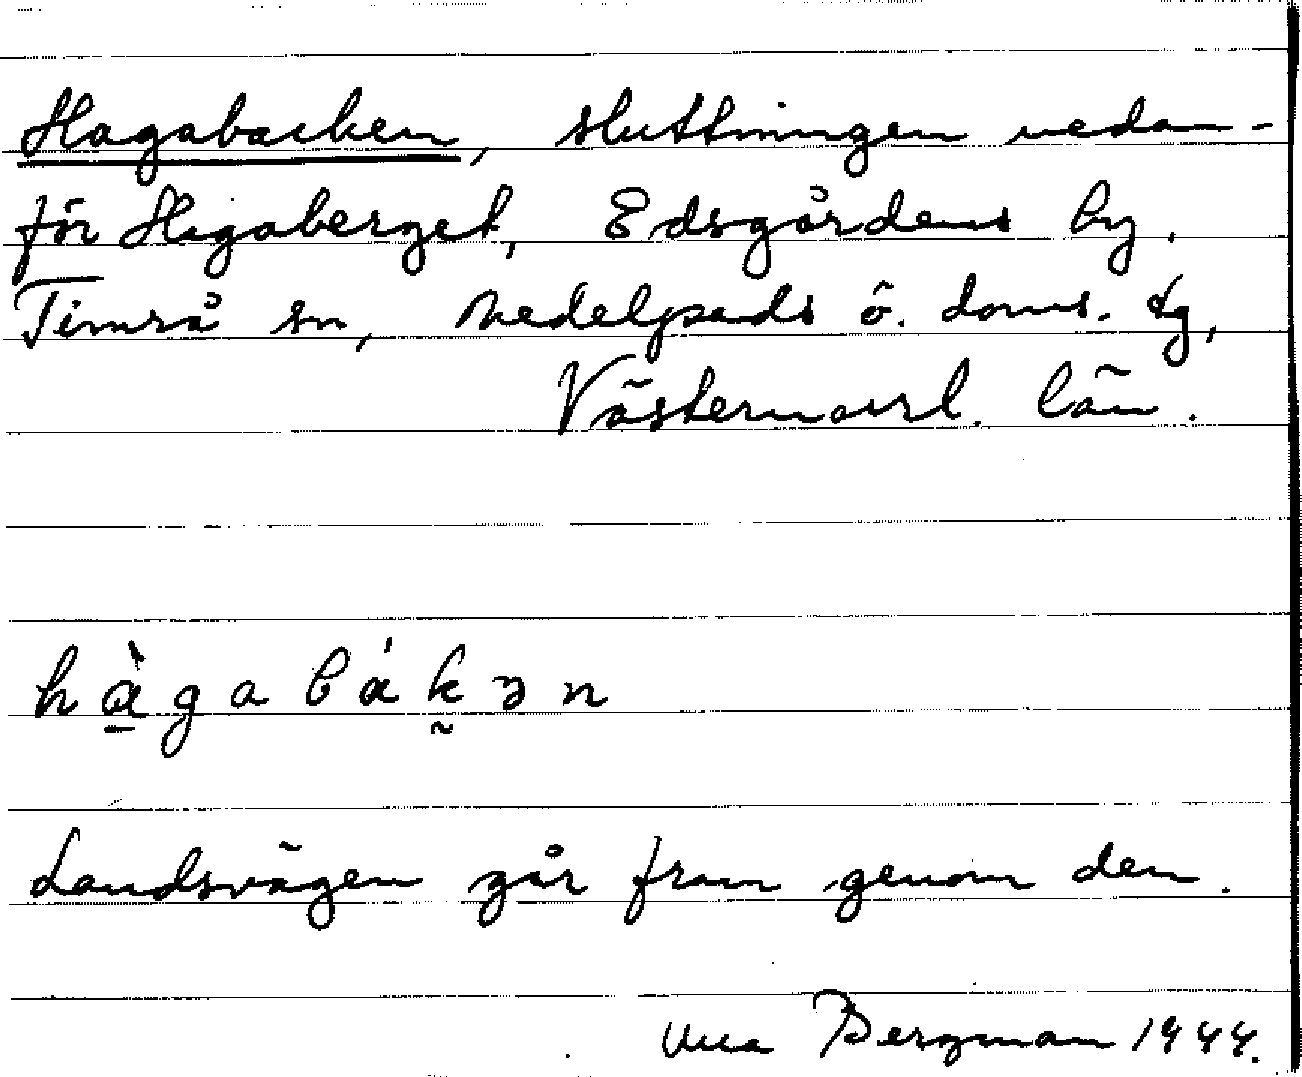 Hagabacken, sluttningen nedan-
för Hagaberget, Edsgårdens by,
Timrå sn, Medelpads ö. doms. tg,
Västernorrl. län.
hàgabákən
Landsvägen går fram genom den.
Bergman 1944.